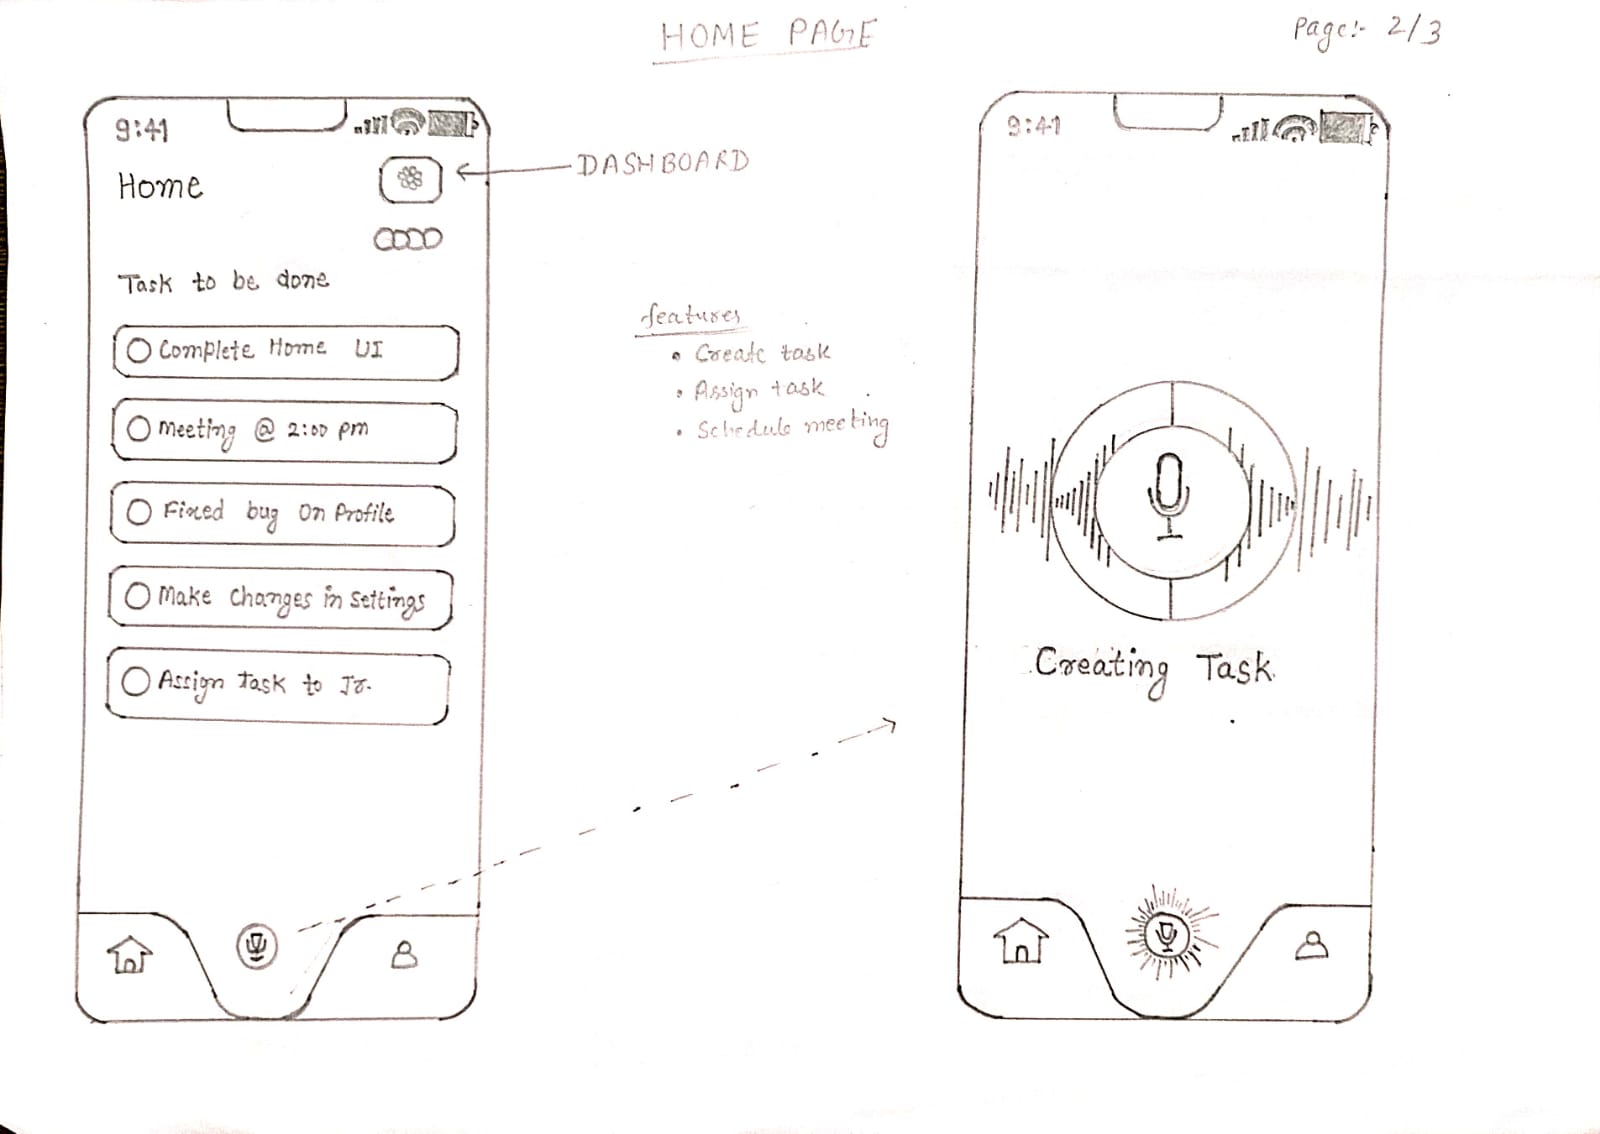 HOME PAGE
Page:- 2/3
9:41
Home
DASHBOARD
Task to be done
Complete Home UI
Meeting @ 2:00 pm
Fixed bug on Profile
Make changes in settings
Assign task to Jr.
features
• Create task
• Assign task
• Schedule meeting
9:41
Creating Task